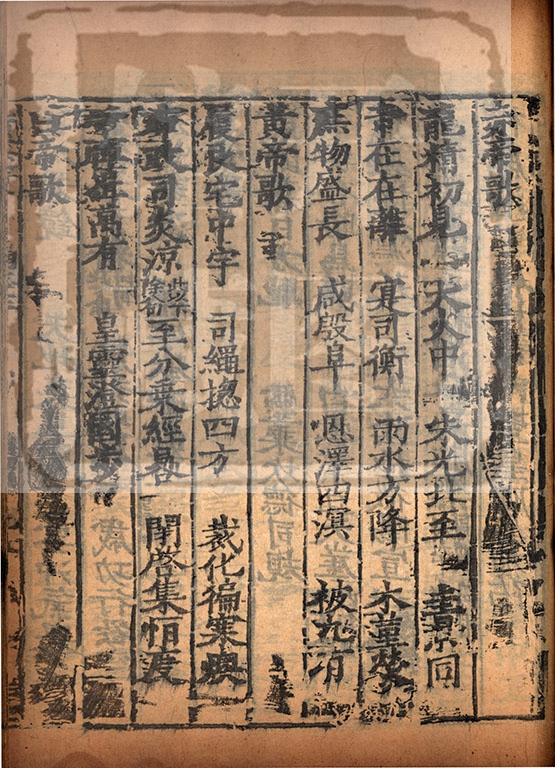 帝歌
龍精初見 大火中 朱光北至 圭景同
帝在在離 寔司衡 雨水方降 木堇榮
庶物盛長 咸殷阜 恩澤四溟 被九有
黃帝歌
履艮宅中宇 司繩揔四方 裁化徧寒燠
布政司炎涼 至分乗經晷 閉啓集恒度
帝運緝萬有 皇靈澄國步
白帝歌